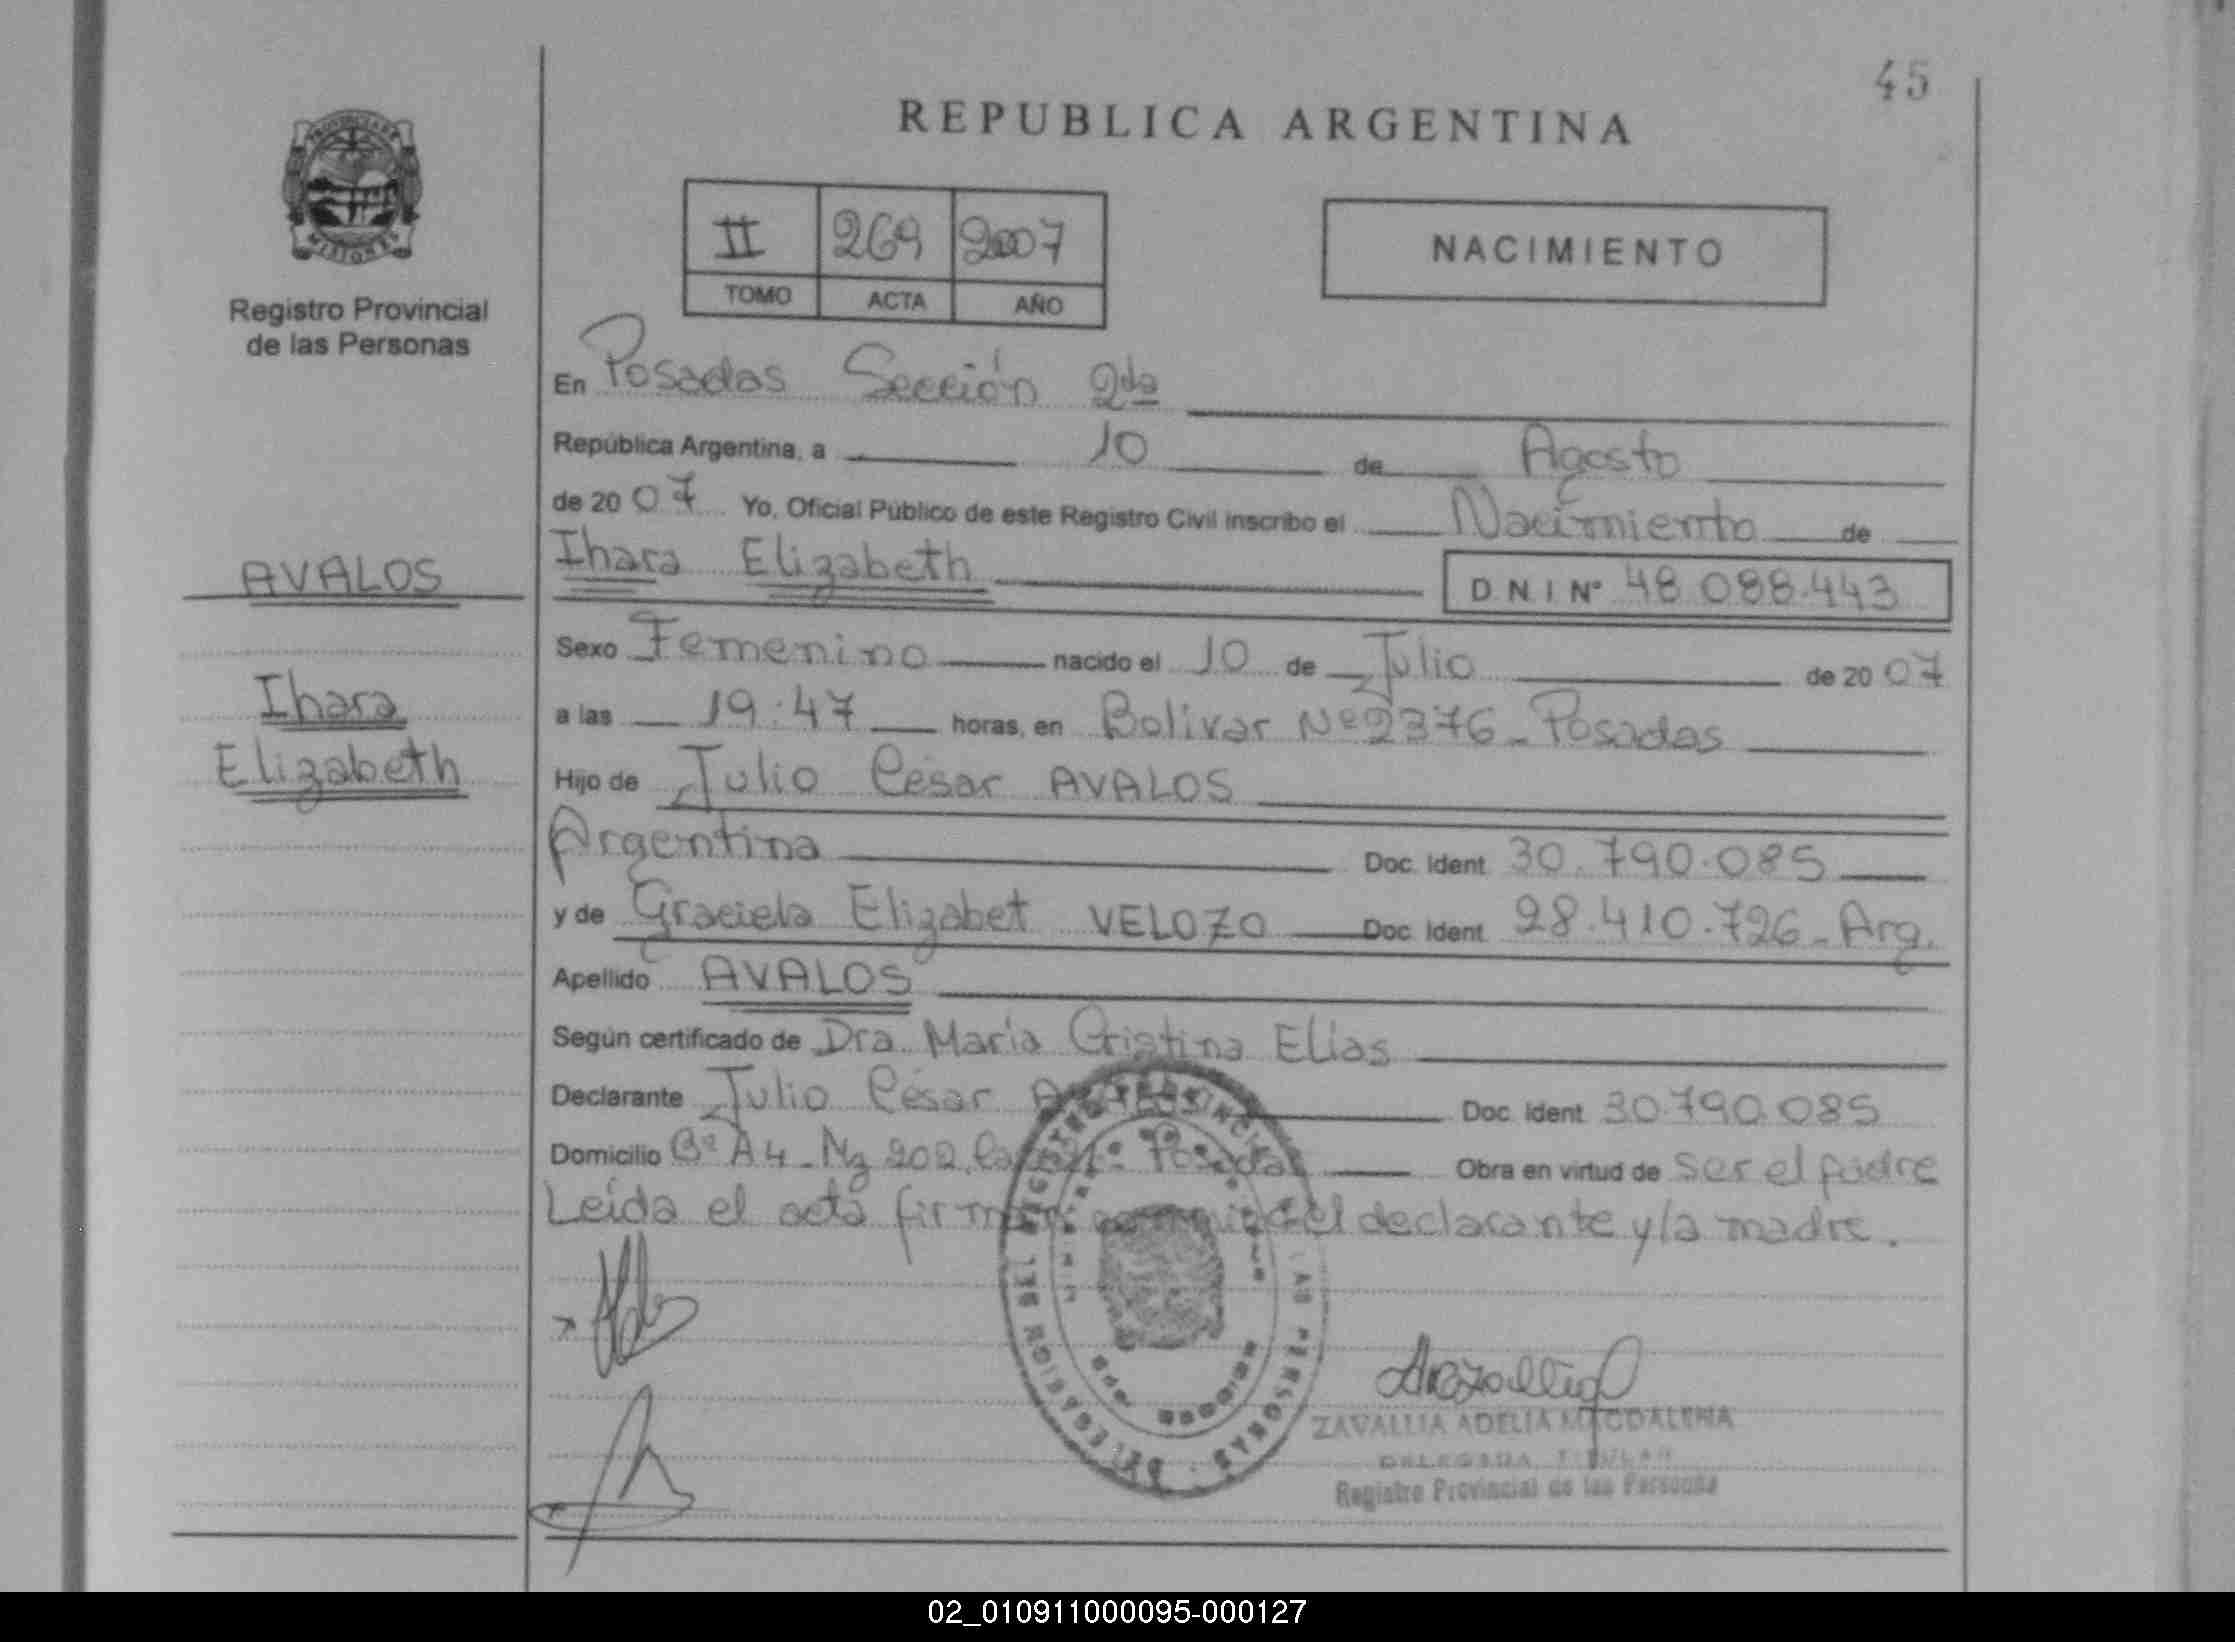 45
REPUBLICA ARGENTINA
PROVINCIA DE
MISIONES
Registro Provincial
de las Personas
II 269 2007
TOMO ACTA AÑO
NACIMIENTO
En Posadas Sección 2da
República Argentina, a 10 de Agosto
de 2007 Yo, Oficial Público de este Registro Civil inscribo el Nacimiento de
Ihara Elizabeth D.N.I Nº 48 088.443
AVALOS
Ihara
Elizabeth
Sexo Femenino nacido el 10 de Julio de 2007
a las 19:47 horas, en Bolivar Nº 2376 - Posadas
Hijo de Julio César AVALOS
Argentina Doc. Ident 30.790.085
y de Graciela Elizabet VELOZO Doc. Ident 28.410.726 - Arg.
Apellido AVALOS
Según certificado de Dra. María Cristina Elías
Declarante Julio César AVALOS Doc. Ident 30.790.085
Domicilio Bº A4 - Mz 202, Posadas Obra en virtud de ser el padre
Leída el acta firman el declarante y la madre.
ZAVALLIA ADELIA MAGDALENA
DELEGADA TITULAR
Registro Provincial de las Personas
02_010911000095-000127